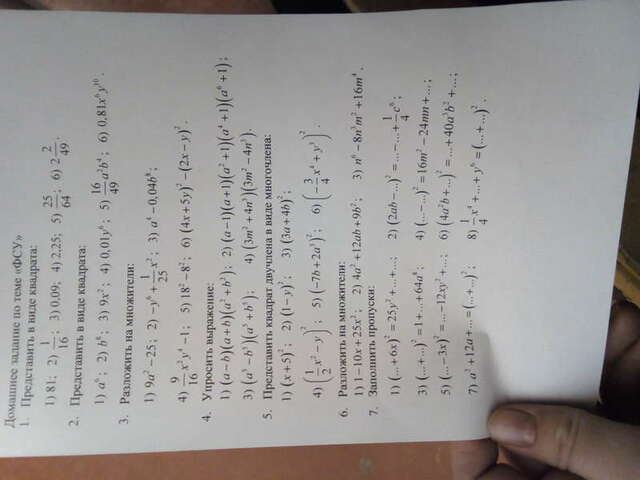 Домашнее задание по теме «ФСУ»
1. Представить в виде квадрата:
1) 81; 2) 1/16; 3) 0,09; 4) 2,25; 5) 25/64; 6) 2 2/49.
2. Представить в виде квадрата:
1) a⁶; 2) b⁸; 3) 9x²; 4) 0,01y⁶; 5) 16/49 a²b⁴; 6) 0,81x⁶y¹⁰.
3. Разложить на множители:
1) 9a² − 25; 2) −y⁶ + 1/25 x²; 3) a⁴ − 0,04b⁸;
4) 9/16 x²y⁴ − 1; 5) 18² − 8²; 6) (4x + 5y)² − (2x − y)².
4. Упросить выражение:
1) (a − b)(a + b)(a² + b²); 2) (a − 1)(a + 1)(a² + 1)(a⁴ + 1)(a⁸ + 1);
3) (a³ − b³)(a³ + b³); 4) (3m² + 4n³)(3m² − 4n³).
5. Представить квадрат двучлена в виде многочлена:
1) (x + 5)²; 2) (1 − y)²; 3) (3a + 4b)²;
4) (1/2 x² − y)²; 5) (−7b + 2a³)²; 6) (−3/4 x⁴ + y³)².
6. Разложить на множители:
1) 1 − 10x + 25x²; 2) 4a² + 12ab + 9b²; 3) n⁶ − 8n³m² + 16m⁴.
7. Заполнить пропуски:
1) (... + 6x)² = 25y² + ... + ...; 2) (2ab − ...)² = ... − ... + 1/4 c⁶;
3) (... + ...)² = 1 + ... + 64a⁸; 4) (... − ...)² = 16m² − 24mn + ...;
5) (... − 3x)² = ... − 12xy² + ...; 6) (4a²b + ...)² = ... + 40a³b² + ...;
7) a² + 12a + ... = (... + ...)²; 8) 1/4 x⁴ + ... + y⁶ = (... + ...)².